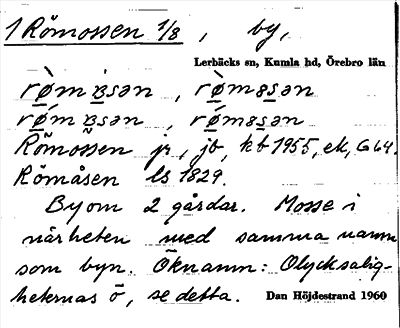 1 Römossen 1/8, by,
Lerbäcks sn, Kumla hd, Örebro län
Römossen jr, jb, kb 1955, ek, G64.
Römåsen ls 1829.
By om 2 gårdar. Mosse i
närheten med samma namn
som byn. Öknamn: Olycksalig-
heternas ö, se detta. Dan Höjdestrand 1960